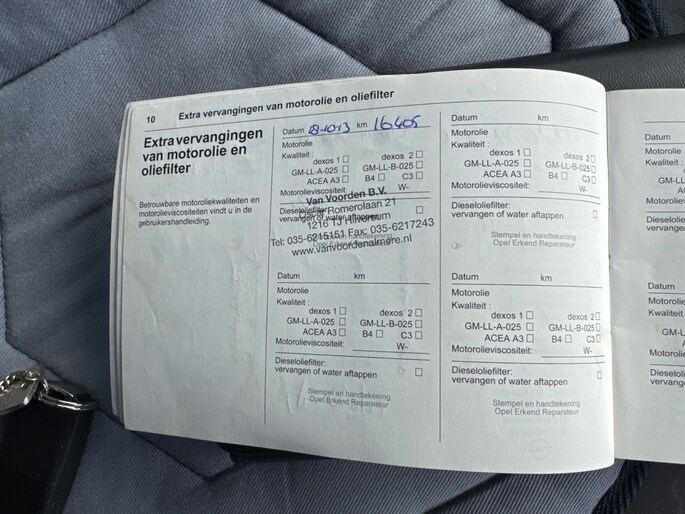 10 Extra vervangingen van motorolie en oliefilter
Extra vervangingen
van motorolie en
oliefilter
Betrouwbare motoroliekwaliteiten en
motorolieviscositeiten vindt u in de
gebruikershandleiding.
Datum 18-10-13 km 16405
Motorolie
Kwaliteit :
dexos 1 ☐ dexos 2 ☐
GM-LL-A-025 ☐ GM-LL-B-025 ☐
ACEA A3 ☐ B4 ☐ C3 ☐
Motorolieviscositeit: W-
Dieseloliefilter:
vervangen of water aftappen ☐
Van Voorden B.V.
Romerolaan 21
1216 TJ Hilversum
Tel: 035-6215151 Fax: 035-6217243
www.vanvoordenalmere.nl
Datum km
Motorolie
Kwaliteit :
dexos 1 ☐ dexos 2 ☐
GM-LL-A-025 ☐ GM-LL-B-025 ☐
ACEA A3 ☐ B4 ☐ C3 ☐
Motorolieviscositeit: W-
Dieseloliefilter:
vervangen of water aftappen ☐
Stempel en handtekening
Opel Erkend Reparateur
Datum km
Motorolie
Kwaliteit :
dexos 1 ☐ dexos 2 ☐
GM-LL-A-025 ☐ GM-LL-B-025 ☐
ACEA A3 ☐ B4 ☐ C3 ☐
Motorolieviscositeit: W-
Dieseloliefilter:
vervangen of water aftappen ☐
Stempel en handtekening
Opel Erkend Reparateur
Datum km
Motorolie
Kwaliteit :
dexos 1 ☐ dexos 2 ☐
GM-LL-A-025 ☐ GM-LL-B-025 ☐
ACEA A3 ☐ B4 ☐ C3 ☐
Motorolieviscositeit: W-
Dieseloliefilter:
vervangen of water aftappen ☐
Stempel en handtekening
Opel Erkend Reparateur
Datum
Motorolie
Kwaliteit :